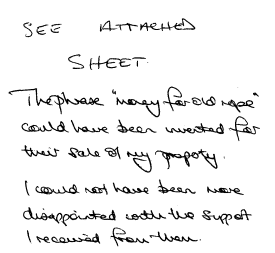 SEE ATTACHED
SHEET.
The phrase "money for old rope"
could have been invented for
their sale of my property.
I could not have been more
disappointed with the support
I received from them.